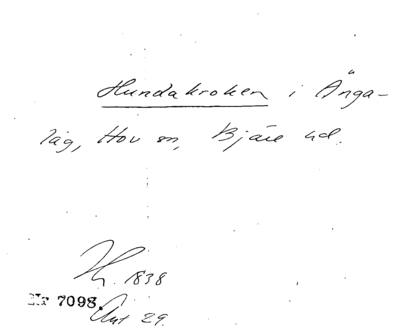 Hundakroken i Änga-
låg, Hov sn, Bjäre hd.
H. 1838
Nr 7098.
Ant 29.